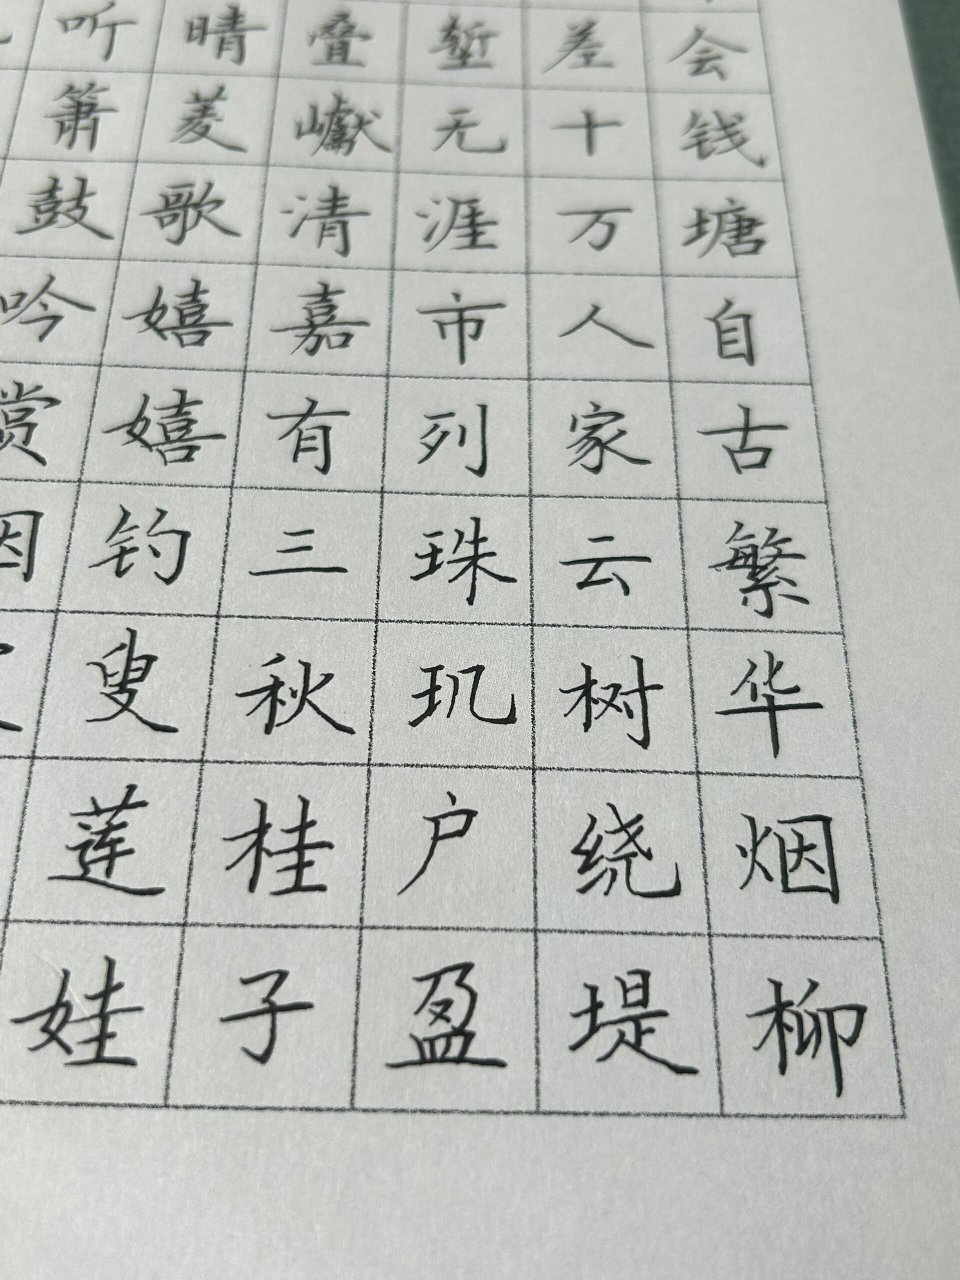 会钱塘自古繁华烟柳
差十万人家云树绕堤
堑无涯市列珠玑户盈
叠巘清嘉有三秋桂子
晴菱歌嬉嬉钓叟莲娃
听箫鼓吟赏